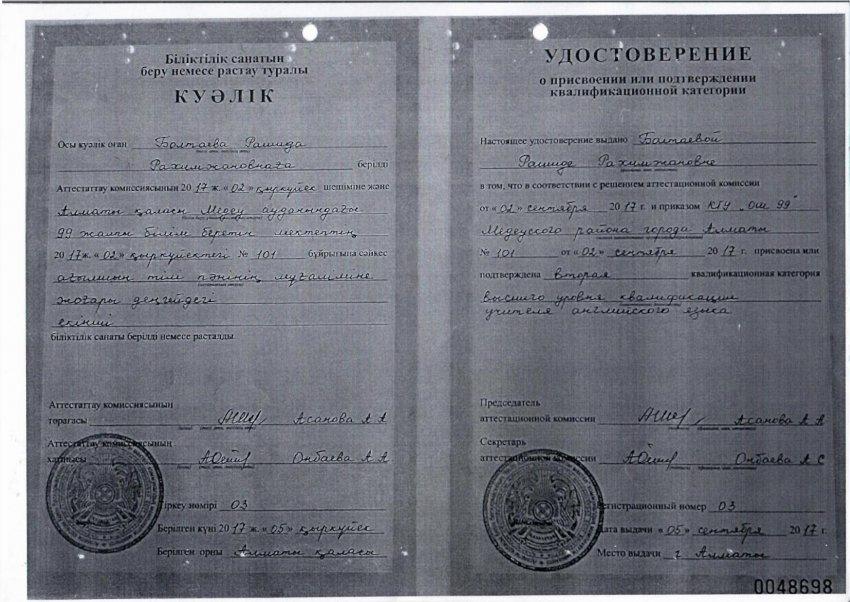 Біліктілік санатын
беру немесе растау туралы
КУӘЛІК
Осы куәлік оған Болтаева Рашида
Рахимжановнаға берілді
Аттестаттау комиссиясының 2017 ж. «02» қыркүйек шешіміне және
Алматы қаласы Медеу ауданындағы
99 жалпы білім беретін мектептің
2017ж. «02» қыркүйектегі № 101 бұйрығына сәйкес
ағылшын тілі пәнінің мұғаліміне
жоғары деңгейдегі
екінші
біліктілік санаты берілді немесе расталды.
Аттестаттау комиссиясының
төрағасы Асанова А А
Аттестаттау комиссиясының
хатшысы Онбаева А А
Тіркеу нөмірі 03
Берілген күні 2017 ж. «05» қыркүйек
Берілген орны Алматы қаласы
УДОСТОВЕРЕНИЕ
о присвоении или подтверждении
квалификационной категории
Настоящее удостоверение выдано Болтаевой
Рашиде Рахимжановне
в том, что в соответствии с решением аттестационной комиссии
от «02» сентября 2017 г. и приказом КГУ „ОШ 99"
Медеуского района города Алматы
№ 101 от «02» сентября 2017 г. присвоена или
подтверждена вторая квалификационная категория
высшего уровня квалификации
учителя английского языка
Председатель
аттестационной комиссии Асанова А А
Секретарь
аттестационной комиссии Онбаева А С
Регистрационный номер 03
Дата выдачи «05» сентября 2017 г.
Место выдачи г Алматы
0048698